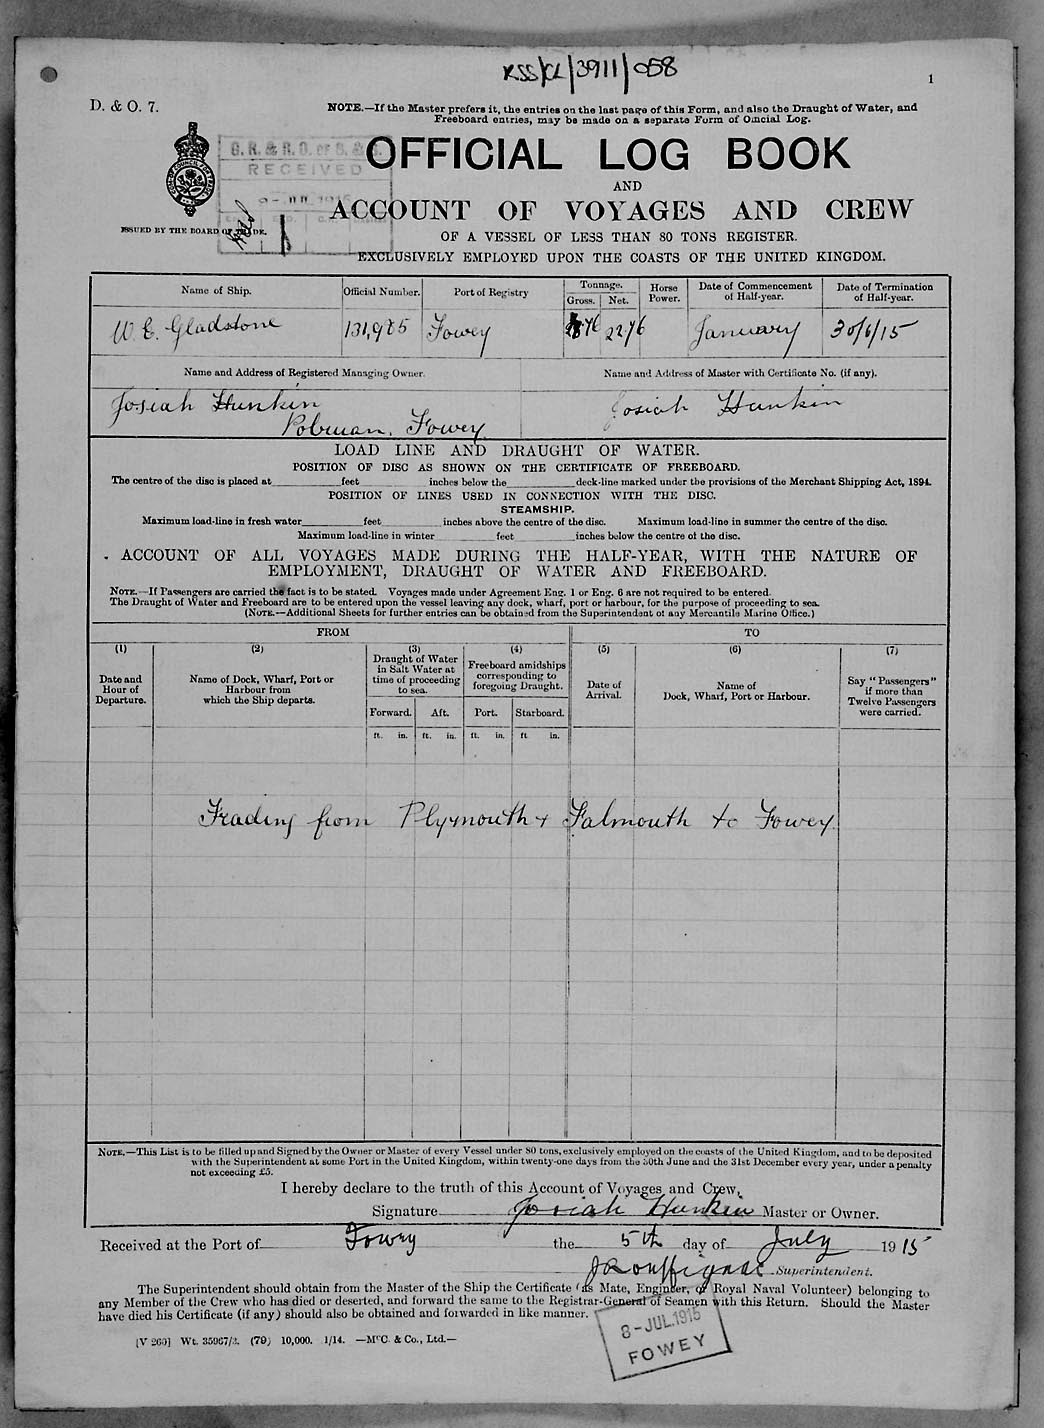 RSS/CL/3911/058
1
D. & O. 7.
NOTE.—If the Master prefers it, the entries on the last page of this Form, and also the Draught of Water, and
Freeboard entries, may be made on a separate Form of Official Log.
RECEIVED
OFFICIAL LOG BOOK
AND
ACCOUNT OF VOYAGES AND CREW
ISSUED BY THE BOARD OF TRADE.
OF A VESSEL OF LESS THAN 80 TONS REGISTER.
EXCLUSIVELY EMPLOYED UPON THE COASTS OF THE UNITED KINGDOM.
Name of Ship. Official Number. Port of Registry Tonnage. Gross. Net. Horse Power. Date of Commencement of Half-year. Date of Termination of Half-year.
W. E. Gladstone 131,985 Fowey 22.76 January 30/6/15
Name and Address of Registered Managing Owner. Name and Address of Master with Certificate No. (if any).
Josiah Hunkin Josiah Hunkin
Polruan, Fowey
LOAD LINE AND DRAUGHT OF WATER.
POSITION OF DISC AS SHOWN ON THE CERTIFICATE OF FREEBOARD.
The centre of the disc is placed at feet inches below the deck-line marked under the provisions of the Merchant Shipping Act, 1894.
POSITION OF LINES USED IN CONNECTION WITH THE DISC.
STEAMSHIP.
Maximum load-line in fresh water feet inches above the centre of the disc. Maximum load-line in summer the centre of the disc.
Maximum load-line in winter feet inches below the centre of the disc.
ACCOUNT OF ALL VOYAGES MADE DURING THE HALF-YEAR, WITH THE NATURE OF
EMPLOYMENT, DRAUGHT OF WATER AND FREEBOARD.
NOTE.—If Passengers are carried the fact is to be stated. Voyages made under Agreement Eng. 1 or Eng. 6 are not required to be entered.
The Draught of Water and Freeboard are to be entered upon the vessel leaving any dock, wharf, port or harbour, for the purpose of proceeding to sea.
(NOTE.—Additional Sheets for further entries can be obtained from the Superintendent of any Mercantile Marine Office.)
FROM TO
(1) (2) (3) (4) (5) (6) (7)
Date and Hour of Departure.
Name of Dock, Wharf, Port or Harbour from which the Ship departs.
Draught of Water in Salt Water at time of proceeding to sea.
Freeboard amidships corresponding to foregoing Draught.
Date of Arrival.
Name of Dock, Wharf, Port or Harbour.
Say "Passengers" if more than Twelve Passengers were carried.
Forward. Aft. Port. Starboard.
ft. in. ft. in. ft. in. ft. in.
Trading from Plymouth & Falmouth to Fowey
NOTE.—This List is to be filled up and Signed by the Owner or Master of every Vessel under 80 tons, exclusively employed on the coasts of the United Kingdom, and to be deposited
with the Superintendent at some Port in the United Kingdom, within twenty-one days from the 30th June and the 31st December every year, under a penalty
not exceeding £5.
I hereby declare to the truth of this Account of Voyages and Crew,
Signature Josiah Hunkin Master or Owner.
Received at the Port of Fowey the 5th day of July 1915
Superintendent.
The Superintendent should obtain from the Master of the Ship the Certificate (as Mate, Engineer, or Royal Naval Volunteer) belonging to
any Member of the Crew who has died or deserted, and forward the same to the Registrar-General of Seamen with this Return. Should the Master
have died his Certificate (if any) should also be obtained and forwarded in like manner.
8-JUL.1915
FOWEY
[V 260] Wt. 35967/3. (79) 10,000. 1/14. —McC. & Co., Ltd.—